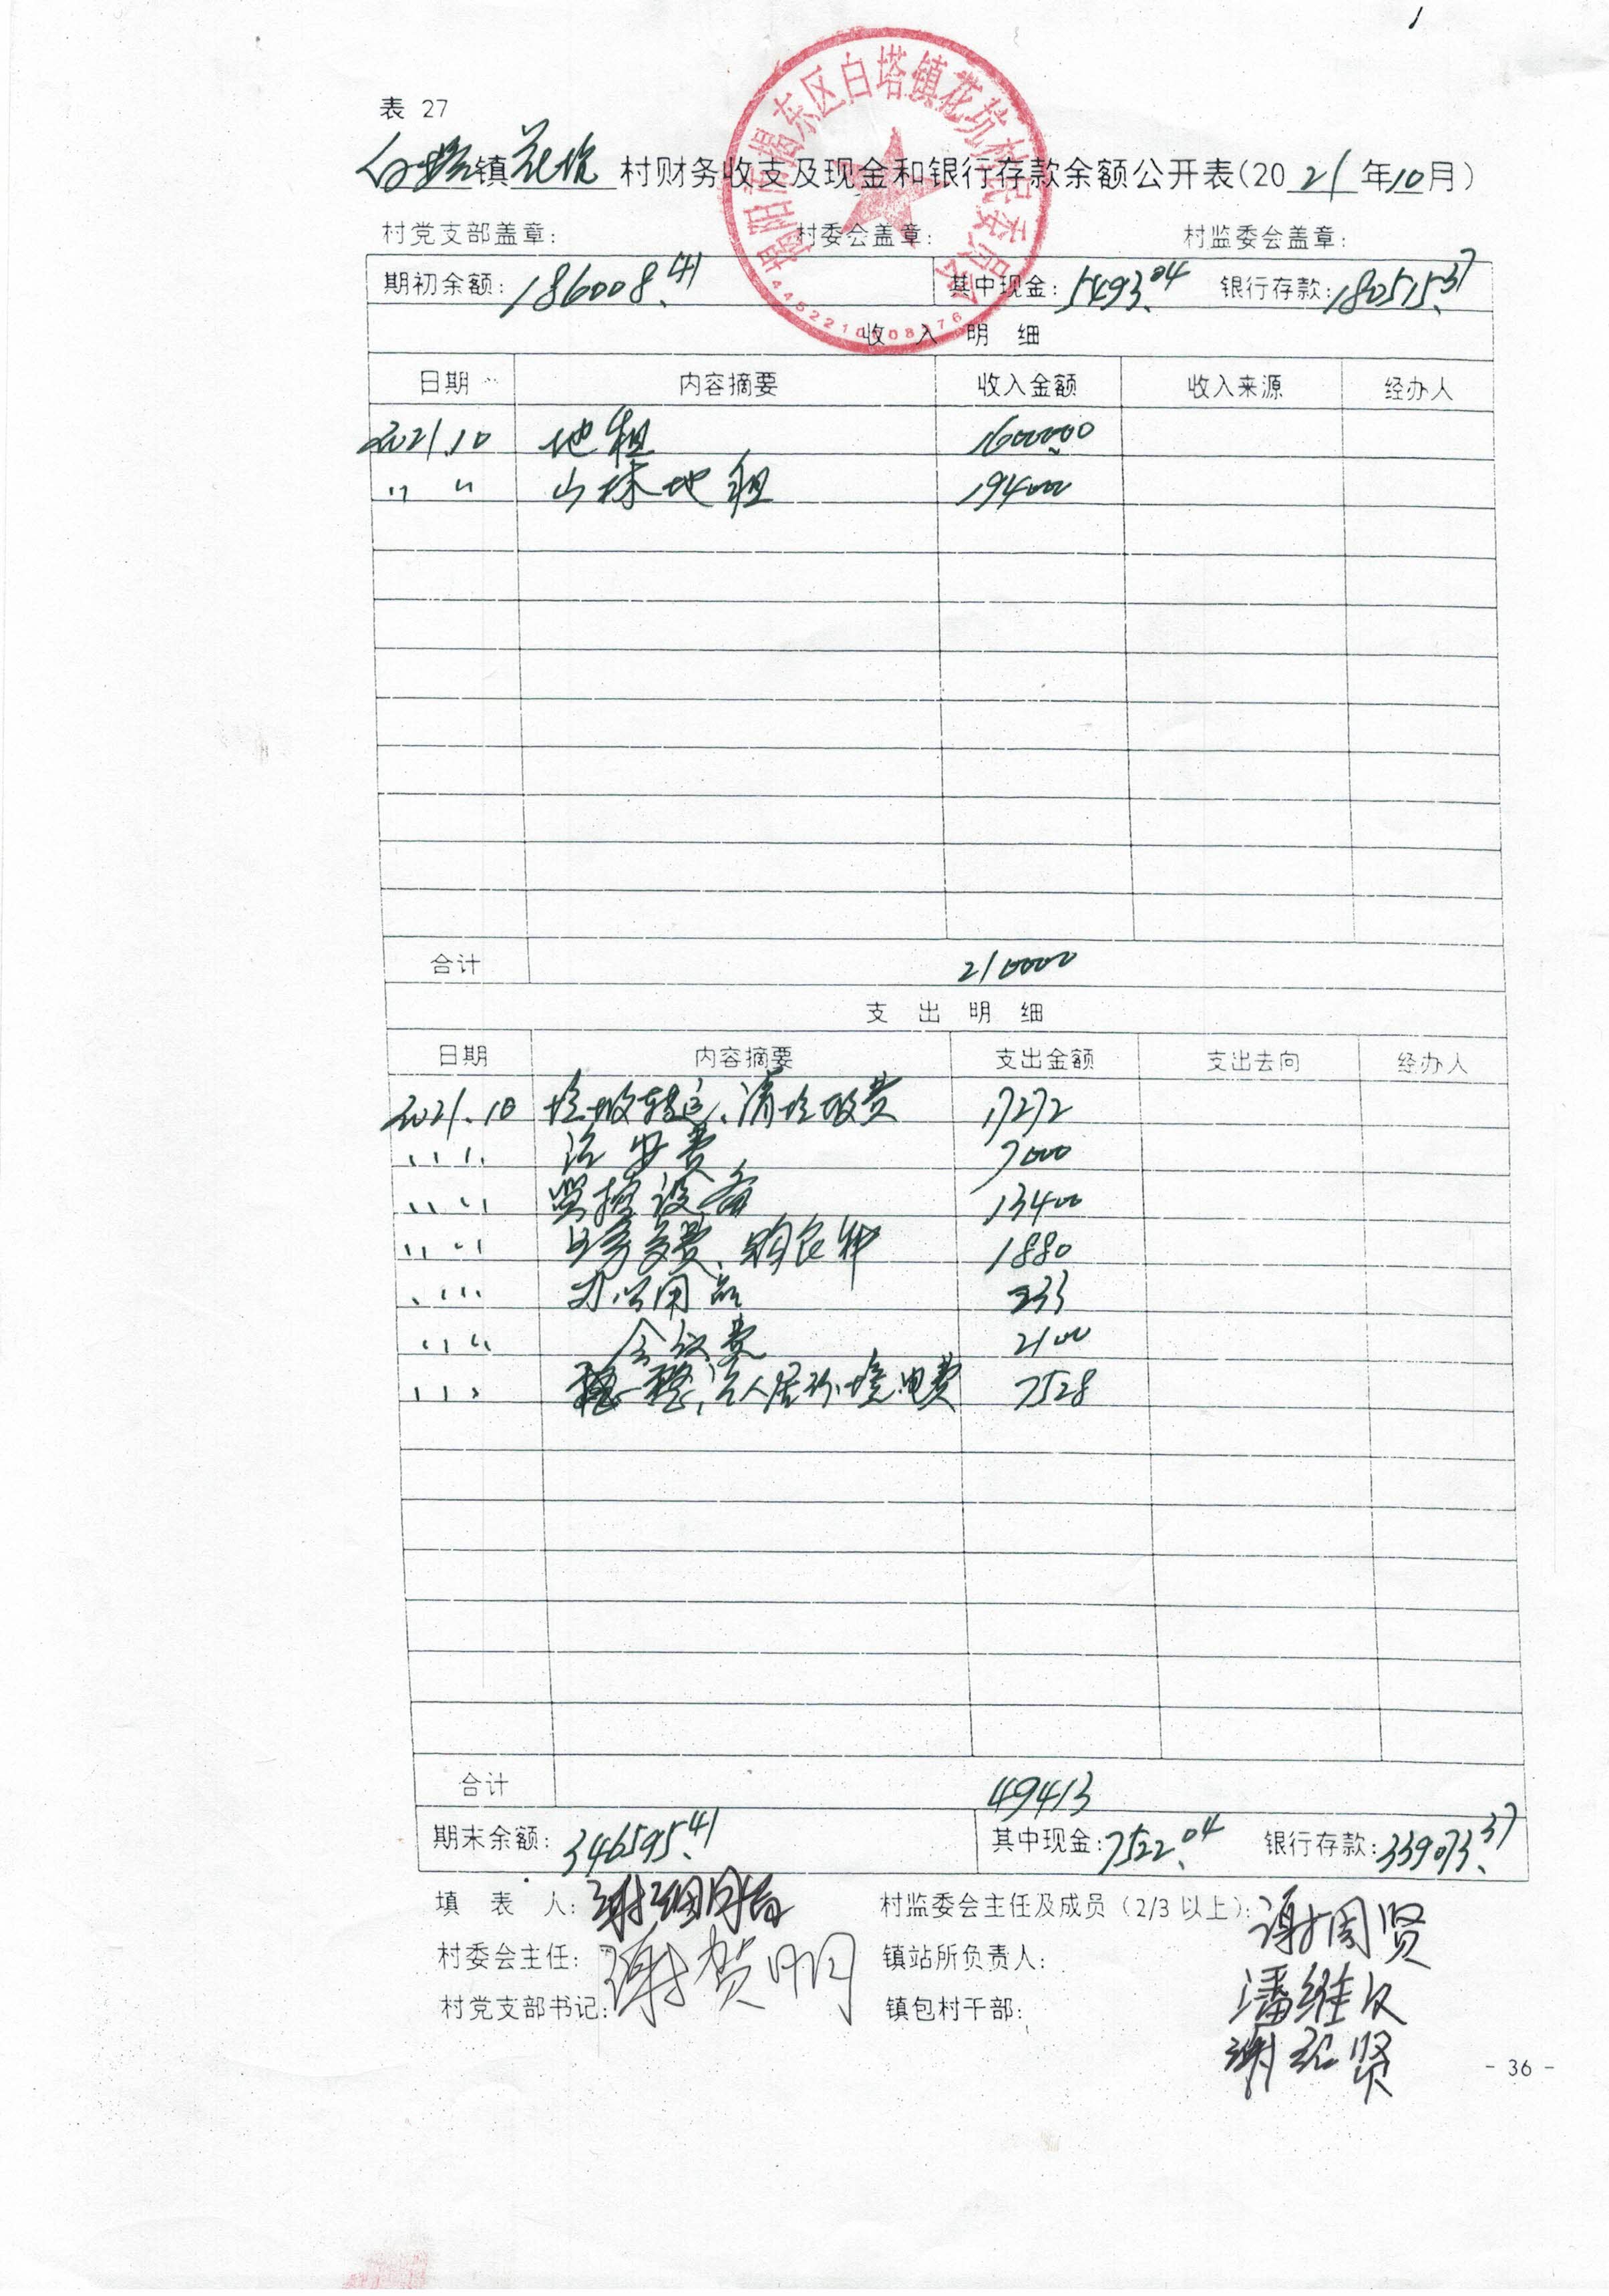 1
表 27
白塔镇花坑村财务收支及现金和银行存款余额公开表(2021年10月)
揭阳市揭东区白塔镇花坑村民委员会
村党支部盖章: 村委会盖章: 村监委会盖章:
期初余额: 186008.41 其中现金: 5493.04 银行存款: 180515.37
收 入 明 细
日期 内容摘要 收入金额 收入来源 经办人
2021.10 地租
〃 〃 山林地租 194000
合计 210000
支 出 明 细
日期 内容摘要 支出金额 支出去向 经办人
2021.10 垃圾转运、清垃圾费 17272
〃 〃 治安费 7000
〃 〃 监控设备 13400
〃 〃 1880
〃 〃 办公用品 233
〃 〃 会议费 2100
〃 〃 人居环境电费 7528
合计 49413
期末余额: 346595.41 其中现金: 7522.04 银行存款: 339073.37
填 表 人: 村监委会主任及成员(2/3以上): 谢周贤
村委会主任: 谢贺明 镇站所负责人:
村党支部书记: 镇包村干部:
- 36 -